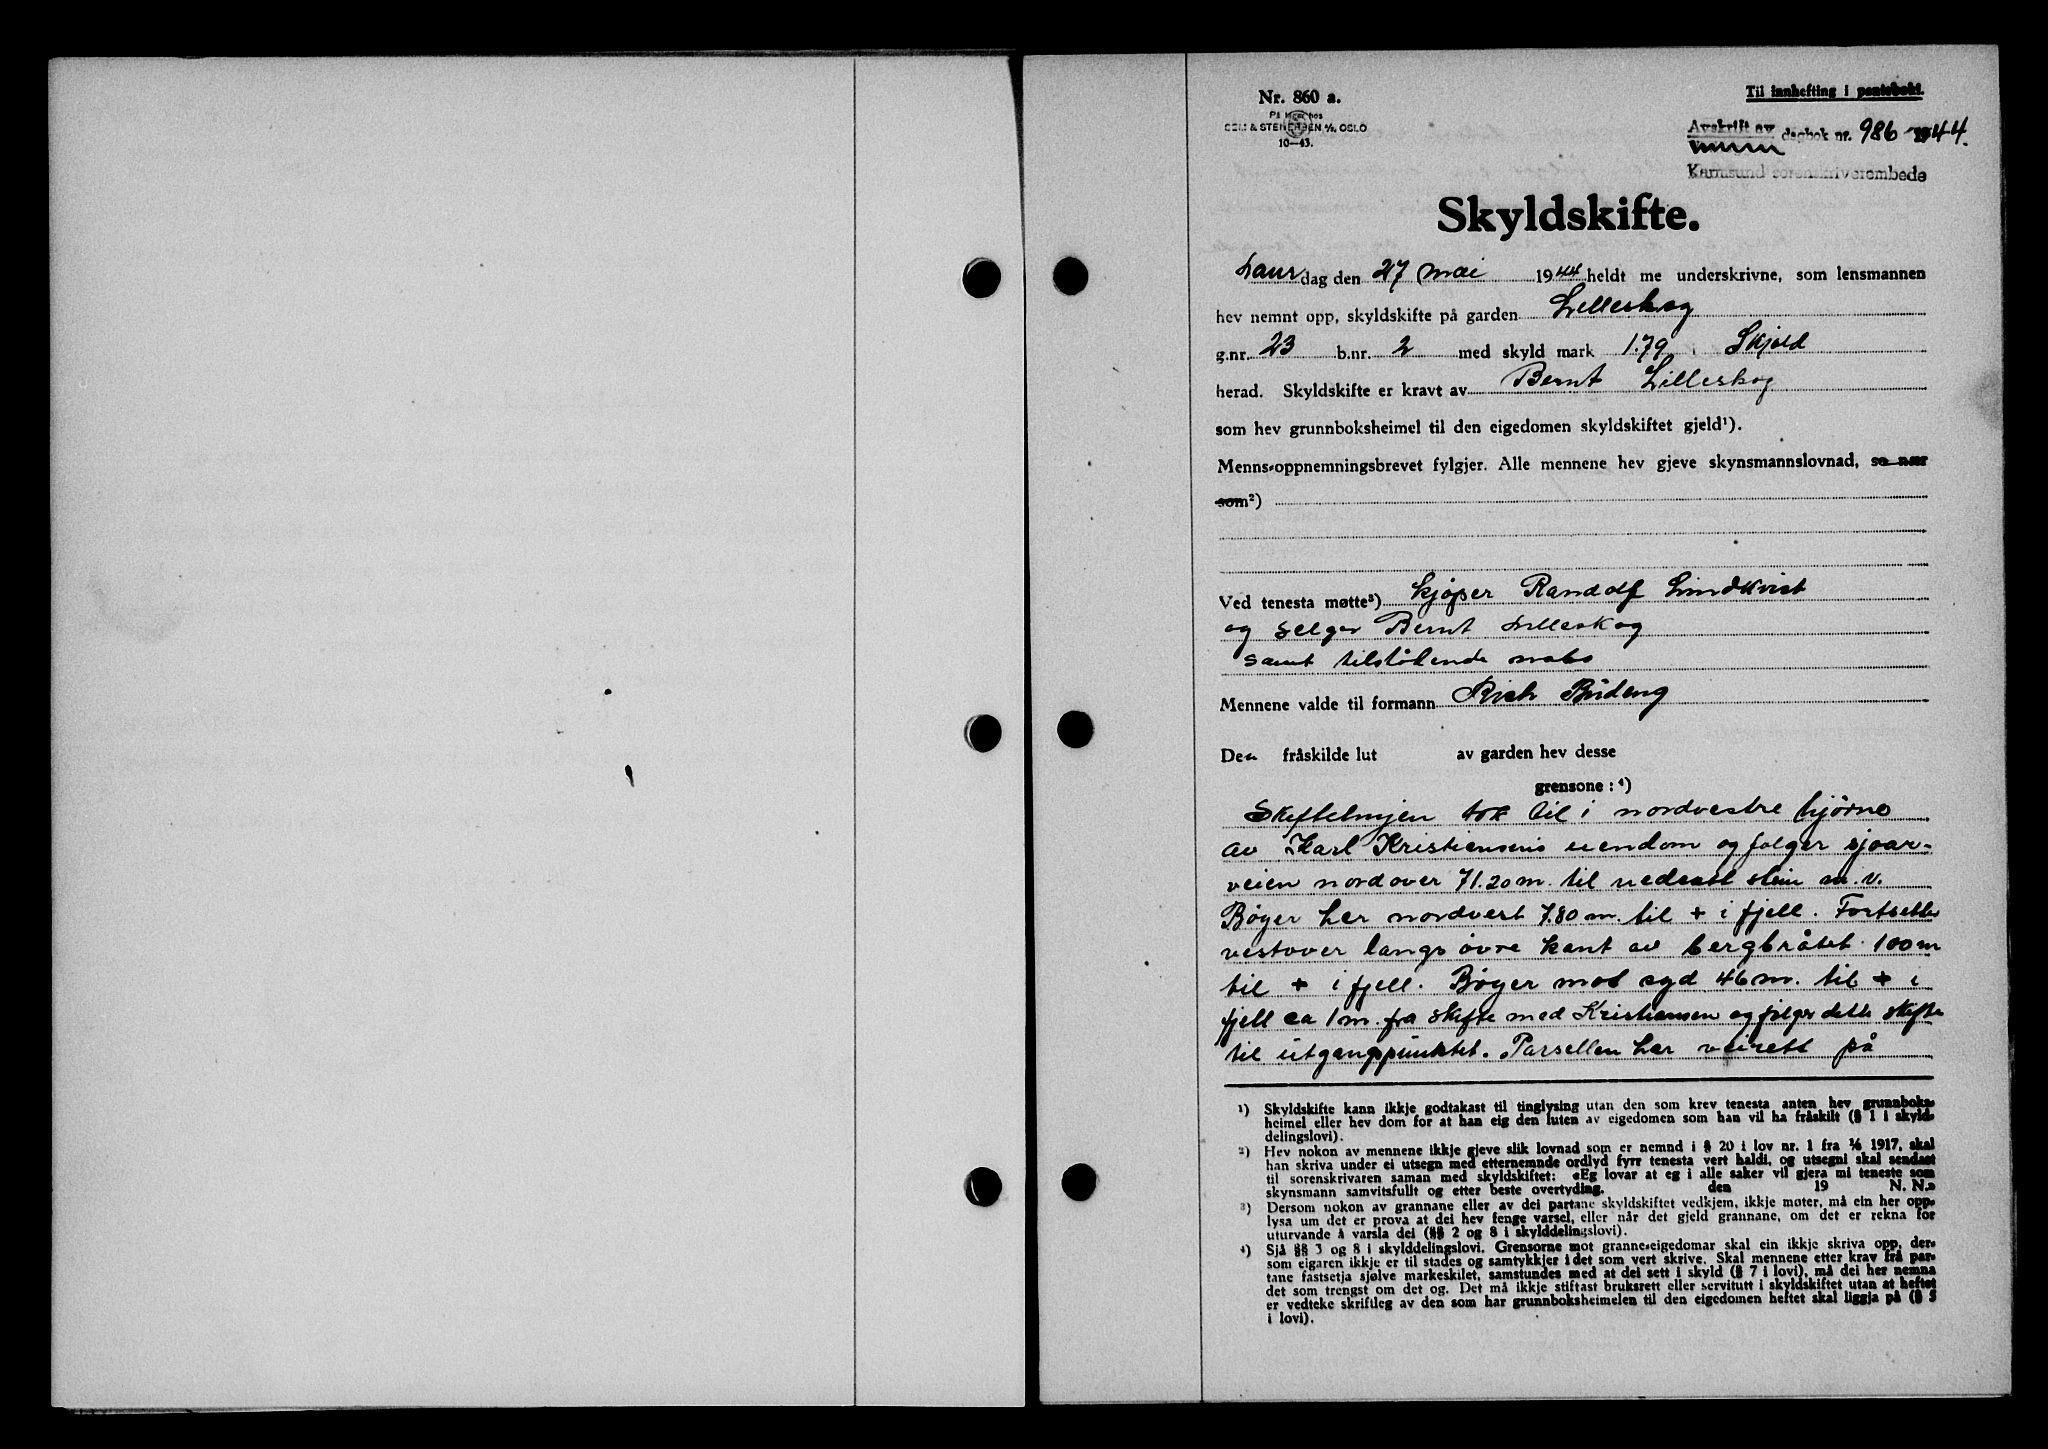 Nr. 860 a.
På lager hos
SEM & STENERSEN A/S, OSLO
10—43.
Til innhefting i panteboki.
Avskrift av
dagbok nr. 986 1944.
Karmsund sorenskriverembede
Skyldskifte.
Laurdag den 27 mai 1944 heldt me underskrivne, som lensmannen
hev nemnt opp, skyldskifte på garden Lilleskog
g.nr. 23 b.nr. 2 med skyld mark 1.79 i Skjold
herad. Skyldskifte er kravt av Bernt Lilleskog
som hev grunnboksheimel til den eigedomen skyldskiftet gjeld¹).
Menns-oppnemningsbrevet fylgjer. Alle mennene hev gjeve skynsmannslovnad, so nær
som²)
Ved tenesta møtte³) kjøper Randolf Lindkvist
og selger Bernt Lilleskog
samt tilstøtende nabo
Mennene valde til formann Rich Büdeng
Den fråskilde lut av garden hev desse
grensone: ⁴)
Skiftelinjen tok til i nordvestre hjørne
av Karl Kristiensens eiendom og følger sjoar-
veien nordover 71.20 m. til nedsatt stein m. v.
Bøger her nordvest 7.80 m. til + i fjell. Fortsetter
vestover langs øvre kant av bergbråtet 100 m
til + i fjell. Bøger mot syd 46 m. til + i
fjell ca 1 m. fra skifte med Kristiansen og følger dette skifte
til utgangspunktet. Parsellen har veirett på
¹) Skyldskifte kann ikkje godtakast til tinglysing utan den som krev tenesta anten hev grunnboks-
heimel eller hev dom for at han eig den luten av eigedomen som han vil ha fråskilt (§ 1 i skyld-
delingslovi).
²) Hev nokon av mennene ikkje gjeve slik lovnad som er nemnd i § 20 i lov nr. 1 fra 1/6 1917, skal
han skriva under ei utsegn med etternemnde ordlyd fyrr tenesta vert haldi, og utsegni skal sendast
til sorenskrivaren saman med skyldskiftet: «Eg lovar at eg i alle saker vil gjera mi teneste som
skynsmann samvitsfullt og etter beste overtyding. den 19 N. N.»
³) Dersom nokon av grannane eller av dei partane skyldskiftet vedkjem, ikkje møter, må ein her opp-
lysa um det er prova at dei hev fenge varsel, eller når det gjeld grannane, om det er rekna for
uturvande å varsla dei (§§ 2 og 8 i skylddelingslovi).
⁴) Sjå §§ 3 og 8 i skylddelingslovi. Grensorne mot granne-eigedomar skal ein ikkje skriva opp, der-
som eigaren ikkje er til stades og samtykkjer i det som vert skrive. Skal mennene etter krav frå par-
tane fastsetja sjølve markeskilet, samstundes med at dei sett i skyld (§ 7 i lovi), må dei her nemna
det som trengst om det og. Det må ikkje stiftast bruksrett eller servitutt i skyldskiftet utan at heftet
er vedteke skriftleg av den som har grunnboksheimelen til den eigedomen heftet skal liggja på (§ 5
i lovi).